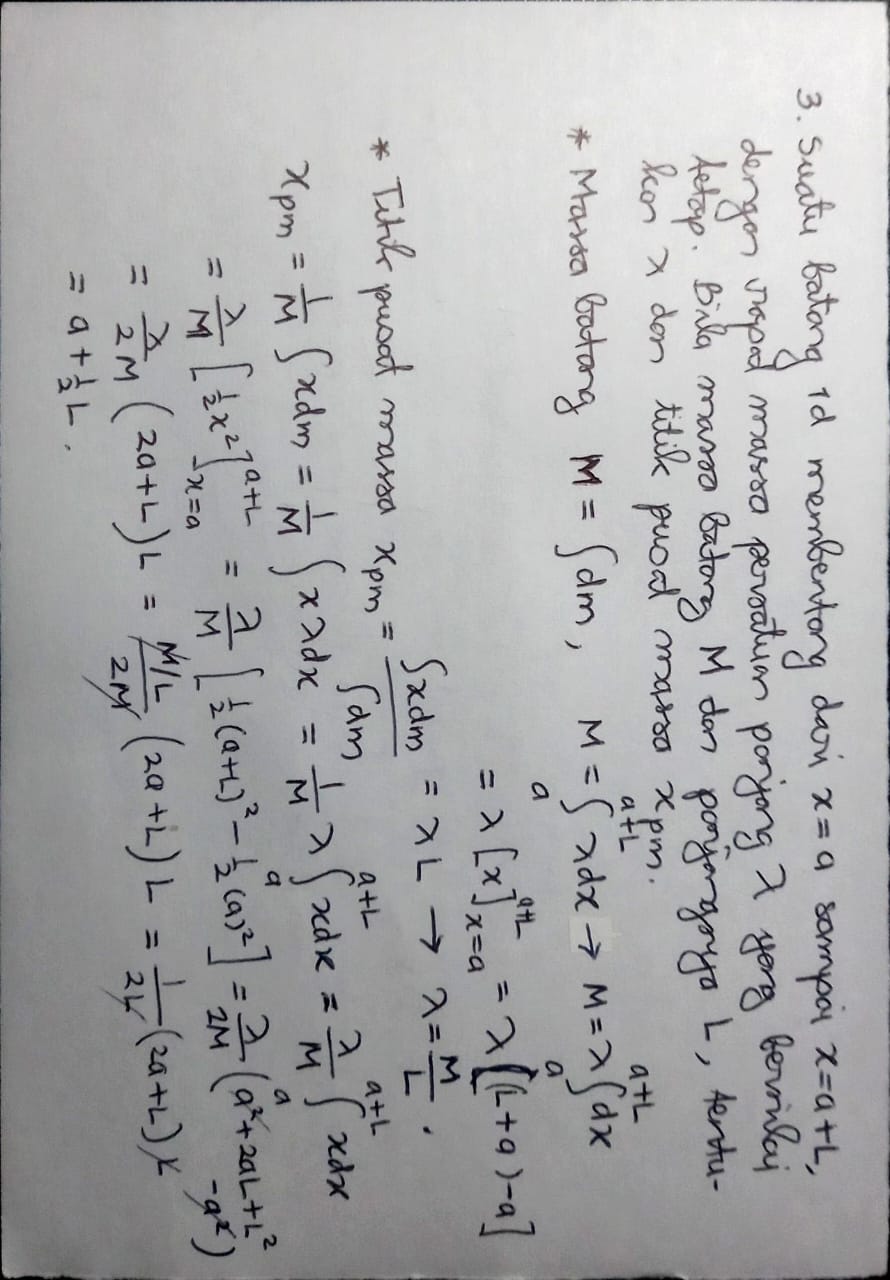 3. Suatu batang 1d membentang dari x = a sampai x = a+L,
dengan rapat massa persatuan panjang λ yang bernilai
tetap. Bila massa batang M dan panjangnya L, tentu-
kan λ dan titik pusat massa x_pm.
* Massa batang M = ∫dm, M = ∫_a^{a+L} λdx → M = λ∫_a^{a+L} dx
= λ[x]_{x=a}^{a+L} = λ[(L+a)-a]
= λL → λ = M/L.
* Titik pusat massa x_pm = ∫xdm / ∫dm
x_pm = 1/M ∫xdm = 1/M ∫xλdx = 1/M λ∫_a^{a+L} xdx = λ/M ∫_a^{a+L} xdx
= λ/M [½x²]_{x=a}^{a+L} = λ/M [½(a+L)² - ½(a)²] = λ/2M (a² + 2aL + L² - a²)
= λ/2M (2a+L)L = M/L / 2M (2a+L)L = 1/2L (2a+L)L
= a + ½L.